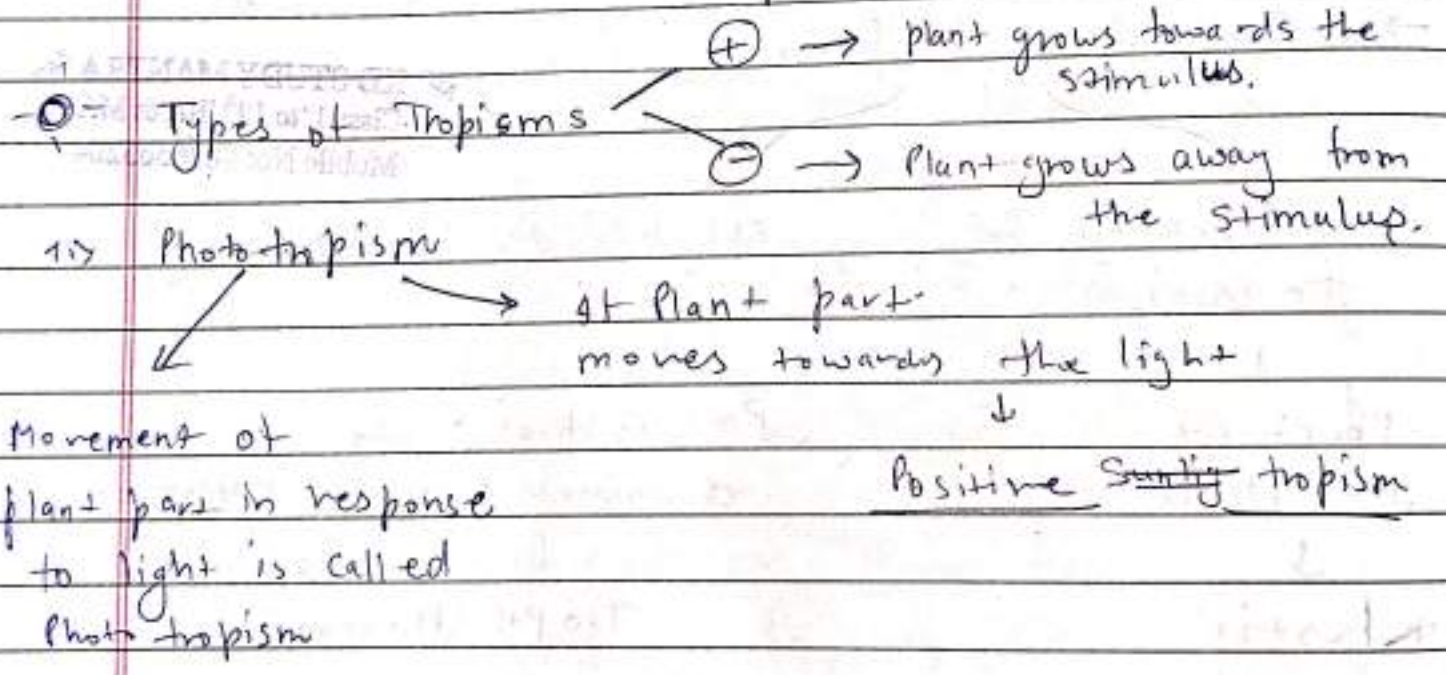 (+) → plant grows towards the
stimulus.
Types of Tropisms
(-) → Plant grows away from
the stimulus.
1.> Phototropism
If Plant part
moves towards the light
↓
Positive tropism
Movement of
plant part in response
to light is called
Photo tropism